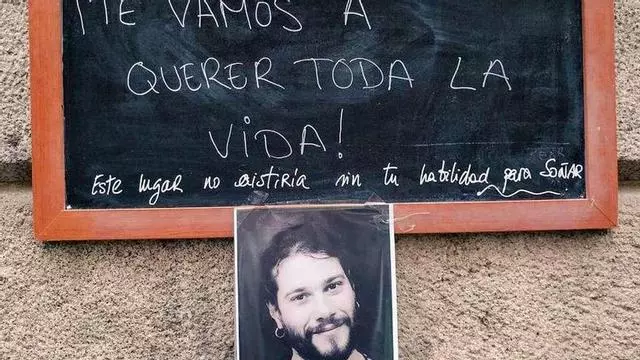 ¡TE VAMOS A
QUERER TODA LA
VIDA!
Este lugar no existiría sin tu habilidad para SOÑAR